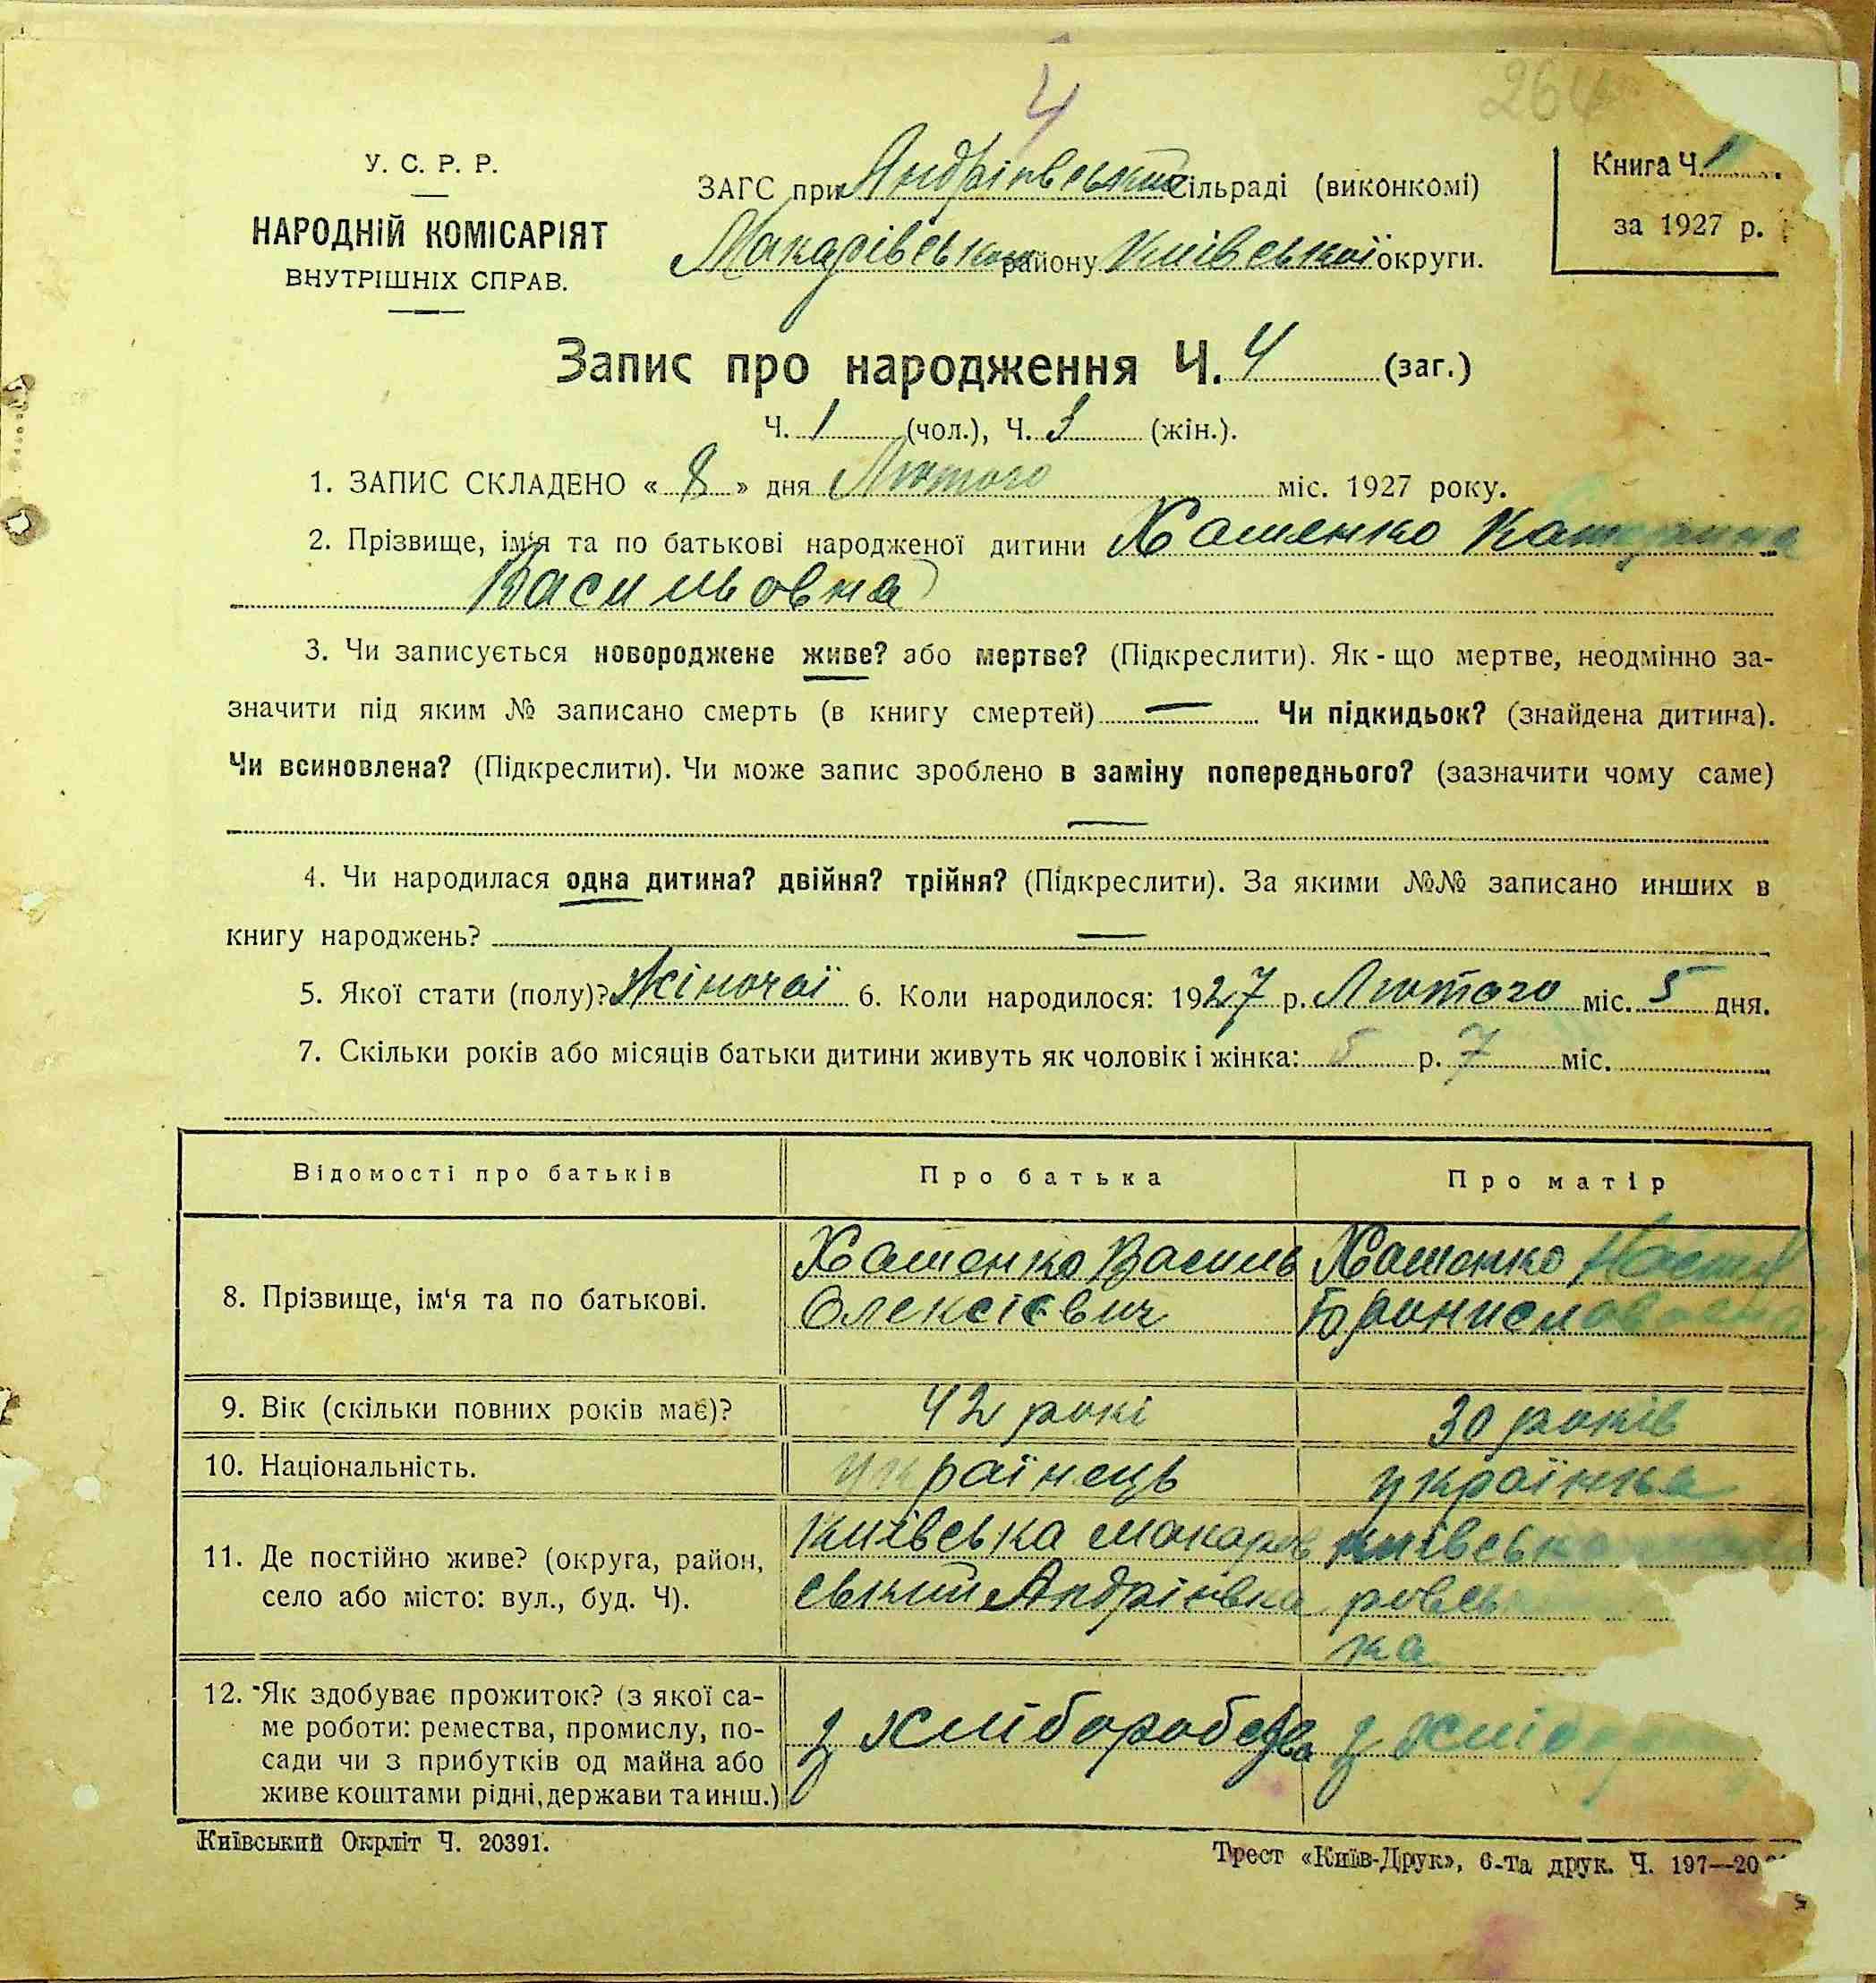 4
264
У. С. Р. Р.
НАРОДНІЙ КОМІСАРІЯТ
ВНУТРІШНІХ СПРАВ.
ЗАГС при Андріївський сільраді (виконкомі)
Макарівського району Київської округи.
Книга Ч. 1
за 1927 р.
Запис про народження Ч. 4 (заг.)
Ч. 1 (чол.), Ч. 3 (жін.).
1. ЗАПИС СКЛАДЕНО « 8 » дня Лютого міс. 1927 року.
2. Прізвище, ім'я та по батькові народженої дитини Хоменко
Васильовна
3. Чи записується новороджене живе? або мертве? (Підкреслити). Як-що мертве, неодмінно за-
значити під яким № записано смерть (в книгу смертей) — Чи підкидьок? (знайдена дитина).
Чи всиновлена? (Підкреслити). Чи може запис зроблено в заміну попереднього? (зазначити чому саме)
—
4. Чи народилася одна дитина? двійня? трійня? (Підкреслити). За якими №№ записано инших в
книгу народжень? —
5. Якої стати (полу)? Жіночої 6. Коли народилося: 1927 р. Лютого міс. 5 дня.
7. Скільки років або місяців батьки дитини живуть як чоловік і жінка: 5 р. 7 міс.
Відомості про батьків Про батька Про матір
8. Прізвище, ім'я та по батькові. Хоменко Василь Олексієвич Хоменко
9. Вік (скільки повних років має)? 42 рокі 30 років
10. Національність. українець українка
11. Де постійно живе? (округа, район, Київська макаров київська
село або місто: вул., буд. Ч). ський Андріївка
ка
12. Як здобуває прожиток? (з якої са-
ме роботи: ремества, промислу, по- з хліборобства з
сади чи з прибутків од майна або
живе коштами рідні, держави та инш.)
Київський Окрліт Ч. 20391.
Трест «Київ-Друк», 6-та друк. Ч. 197—20